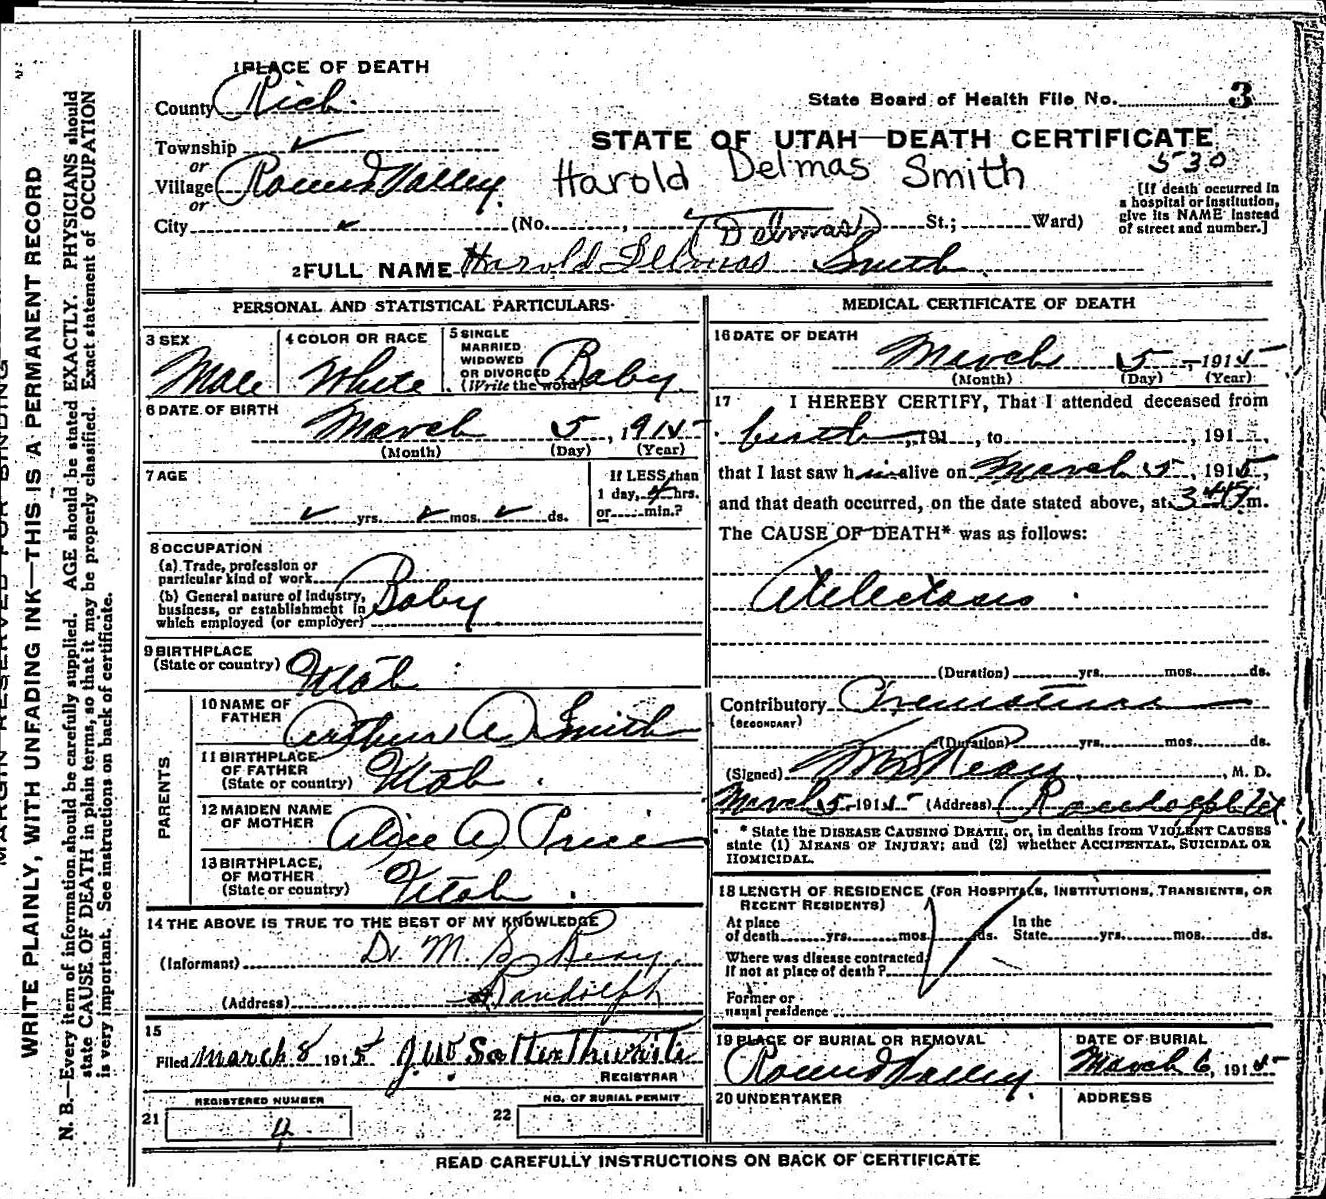 1 PLACE OF DEATH
County Rich.
State Board of Health File No. 3
Township ✓
STATE OF UTAH—DEATH CERTIFICATE
or
Village Round Valley.
Harold Delmas Smith
530
or
[If death occurred in
a hospital or institution,
give its NAME instead
of street and number.]
City ✓ (No. , St.; Ward)
(Delmas)
2 FULL NAME Harold Delmas Smith
PERSONAL AND STATISTICAL PARTICULARS
3 SEX
Male
4 COLOR OR RACE
White
5 SINGLE
MARRIED
WIDOWED
OR DIVORCED
(Write the word)
Baby
6 DATE OF BIRTH
March 5, 1915
(Month) (Day) (Year)
7 AGE
✓ yrs. ✓ mos. ✓ ds.
If LESS than
1 day, 4 hrs.
or min.?
8 OCCUPATION
(a) Trade, profession or
particular kind of work
(b) General nature of industry,
business, or establishment in
which employed (or employer)
Baby
9 BIRTHPLACE
(State or country) Utah
PARENTS
10 NAME OF
FATHER Arthur A. Smith
11 BIRTHPLACE
OF FATHER
(State or country) Utah.
12 MAIDEN NAME
OF MOTHER Alice A. Price
13 BIRTHPLACE,
OF MOTHER
(State or country) Utah.
14 THE ABOVE IS TRUE TO THE BEST OF MY KNOWLEDGE
(Informant) Dr M. S. Reay
(Address) Randolph
15
Filed March 8 1915 J.W. Satterthwaite
REGISTRAR
21
REGISTERED NUMBER
4
22
NO. OF BURIAL PERMIT
MEDICAL CERTIFICATE OF DEATH
16 DATE OF DEATH
March 5, 1915
(Month) (Day) (Year)
17 I HEREBY CERTIFY, That I attended deceased from
birth, 191 , to , 191 ,
that I last saw him alive on March 5, 1915,
and that death occurred, on the date stated above, at 3 m.
The CAUSE OF DEATH* was as follows:
Atelectasis.
(Duration) yrs. mos. ds.
Contributory Premature
(SECONDARY)
(Duration) yrs. mos. ds.
(Signed) M.S. Reay, M. D.
March 5 1915 (Address) Randolph Ut.
* State the DISEASE CAUSING DEATH, or, in deaths from VIOLENT CAUSES
state (1) MEANS OF INJURY; and (2) whether ACCIDENTAL, SUICIDAL OR
HOMICIDAL.
18 LENGTH OF RESIDENCE (FOR HOSPITALS, INSTITUTIONS, TRANSIENTS, OR
RECENT RESIDENTS)
At place
of death yrs. mos. ds.
In the
State yrs. mos. ds.
Where was disease contracted,
If not at place of death?
Former or
usual residence
19 PLACE OF BURIAL OR REMOVAL
Round Valley.
DATE OF BURIAL
March 6, 1915
20 UNDERTAKER
ADDRESS
READ CAREFULLY INSTRUCTIONS ON BACK OF CERTIFICATE
MARGIN RESERVED FOR BINDING
WRITE PLAINLY, WITH UNFADING INK—THIS IS A PERMANENT RECORD
N. B.—Every item of information should be carefully supplied. AGE should be stated EXACTLY. PHYSICIANS should
state CAUSE OF DEATH in plain terms, so that it may be properly classified. Exact statement of OCCUPATION
is very important. See instructions on back of certificate.